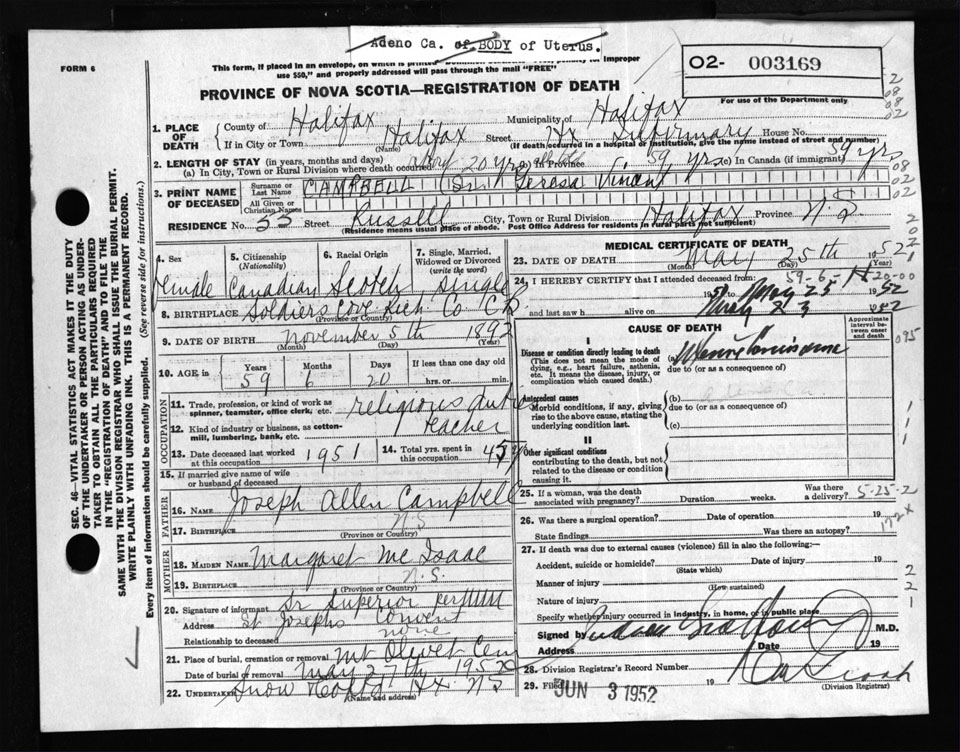 Adeno Ca. of BODY of Uterus.
FORM 6
This form, if placed in an envelope, on which is printed
use $50," and properly addressed will pass through the mail "FREE"
O2- 003169
For use of the Department only
PROVINCE OF NOVA SCOTIA—REGISTRATION OF DEATH
1. PLACE OF DEATH
County of Halifax Municipality of Halifax
If in City or Town Halifax Street Hx Infirmary House No.
(Name) (If death occurred in a hospital or institution, give the name instead of street and number)
2. LENGTH OF STAY (in years, months and days)
(a) In City, Town or Rural Division where death occurred 20 yrs (b) In Province 59 yrs (c) In Canada (if immigrant) 59 yrs
3. PRINT NAME OF DECEASED
Surname or Last Name CAMPBELL (Sr. Teresa
All Given or Christian Names
RESIDENCE No. 55 Street Russell City, Town or Rural Division Halifax Province N.S.
(Residence means usual place of abode. Post Office Address for residents in rural parts not sufficient)
4. Sex
5. Citizenship (Nationality)
6. Racial Origin
7. Single, Married, Widowed or Divorced (write the word)
Female Canadian Scotch Single
8. BIRTHPLACE Soldiers Cove Rich Co C B
(Province or Country)
9. DATE OF BIRTH November 5th 1892
(Month) (Day) (Year)
10. AGE in Years Months Days If less than one day old
59 6 20 hrs. or min.
OCCUPATION
11. Trade, profession, or kind of work as spinner, teamster, office clerk, etc. religious duties
12. Kind of industry or business, as cotton-mill, lumbering, bank, etc. teacher
13. Date deceased last worked at this occupation 1951
14. Total yrs. spent in this occupation
15. If married give name of wife or husband of deceased
FATHER
16. Name Joseph Allen Campbell
17. Birthplace N.S.
(Province or Country)
MOTHER
18. MAIDEN NAME Margaret Mc Isaac
19. BIRTHPLACE N.S.
(Province or Country)
20. Signature of informant Sr Superior per
Address St Josephs Convent
Relationship to deceased none
21. Place of burial, cremation or removal Mt Olivet Cem
Date of burial or removal May 27th 1952
22. Undertaker Snow Hx NS
(Name and address)
MEDICAL CERTIFICATE OF DEATH
23. DATE OF DEATH May 25th 1952
(Month) (Day)
59-6-20-00
24. I HEREBY CERTIFY that I attended deceased from:
May 25 1952
and last saw h alive on 23 1952
CAUSE OF DEATH
Approximate interval between onset and death
I
Disease or condition directly leading to death
(This does not mean the mode of dying, e.g., heart failure, asthenia, etc. It means the disease, injury, or complication which caused death.)
(a)
due to (or as a consequence of)
Antecedent causes
Morbid conditions, if any, giving rise to the above cause, stating the underlying condition last.
(b)
due to (or as a consequence of)
(c)
II
Other significant conditions
contributing to the death, but not related to the disease or condition causing it.
25. If a woman, was the death associated with pregnancy? Duration weeks. Was there a delivery? 5-25-2
26. Was there a surgical operation? Date of operation 19
State findings Was there an autopsy?
172X
27. If death was due to external causes (violence) fill in also the following:—
Accident, suicide or homicide? Date of injury 19
(State which)
Manner of injury
(How sustained)
Nature of injury
Specify whether injury occurred in industry, in home, or in public place
Signed by M.D.
Address Date 19
28. Division Registrar's Record Number
29. Filed JUN 3 1952 19
(Division Registrar)
SEC. 46—VITAL STATISTICS ACT MAKES IT THE DUTY OF THE UNDERTAKER OR PERSON ACTING AS UNDERTAKER TO OBTAIN ALL THE PARTICULARS REQUIRED IN THE "REGISTRATION OF DEATH" AND TO FILE THE SAME WITH THE DIVISION REGISTRAR WHO SHALL ISSUE THE BURIAL PERMIT.
WRITE PLAINLY WITH UNFADING INK. THIS IS A PERMANENT RECORD.
Every item of information should be carefully supplied. (See reverse side for instructions.)